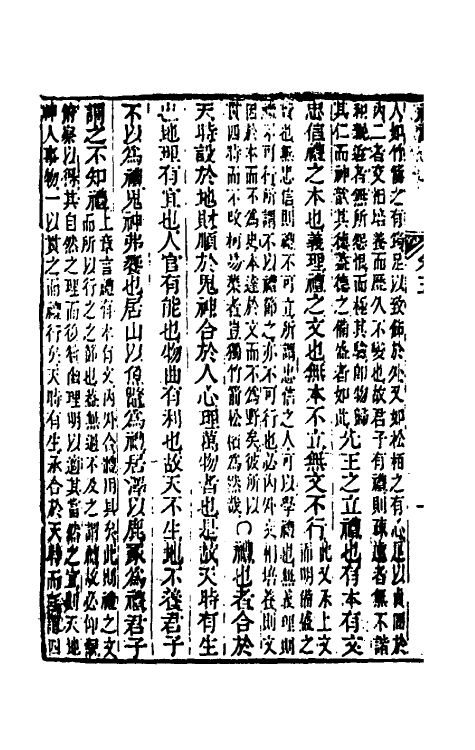 人如竹箭之有筠足以致飾於外又如松柏之有心足以貞固於
內二者交相培養而歷久不變也故君子有禮則疎遠者無不諧
和親近者無所怨恨而極其騐即物歸
其仁而神歆其德蓋德之備盛者如此先王之立禮也有本有文
忠信禮之本也義理禮之文也無本不立無文不行此又承上文
而明備盛之
也無忠信則禮不可立所謂忠信之人可以學禮也無義理則
禮不可行所謂不以禮節之亦不可行也必內外交相培養則文
因於本而不為史本達於文而不為野矣彼所以
貫四時而不改柯易葉者豈獨竹箭松柏為然哉○禮也者合於
天時設於地財順於鬼神合於人心理萬物者也是故天時有生
也地理有宜也人官有能也物曲有利也故天不生地不養君子
不以為禮鬼神弗饗也居山以魚鼈為禮居澤以鹿豕為禮君子
謂之不知禮上章言禮有本有文內外合體用具矣此則禮之文
而所以行之之節也蓋無過不及之謂禮故必仰觀
俯察以得其自然之理而後時由理明以適其當然之宜則天地
神人事物一以貫之而禮行矣天時有生承合於天時而言謂四